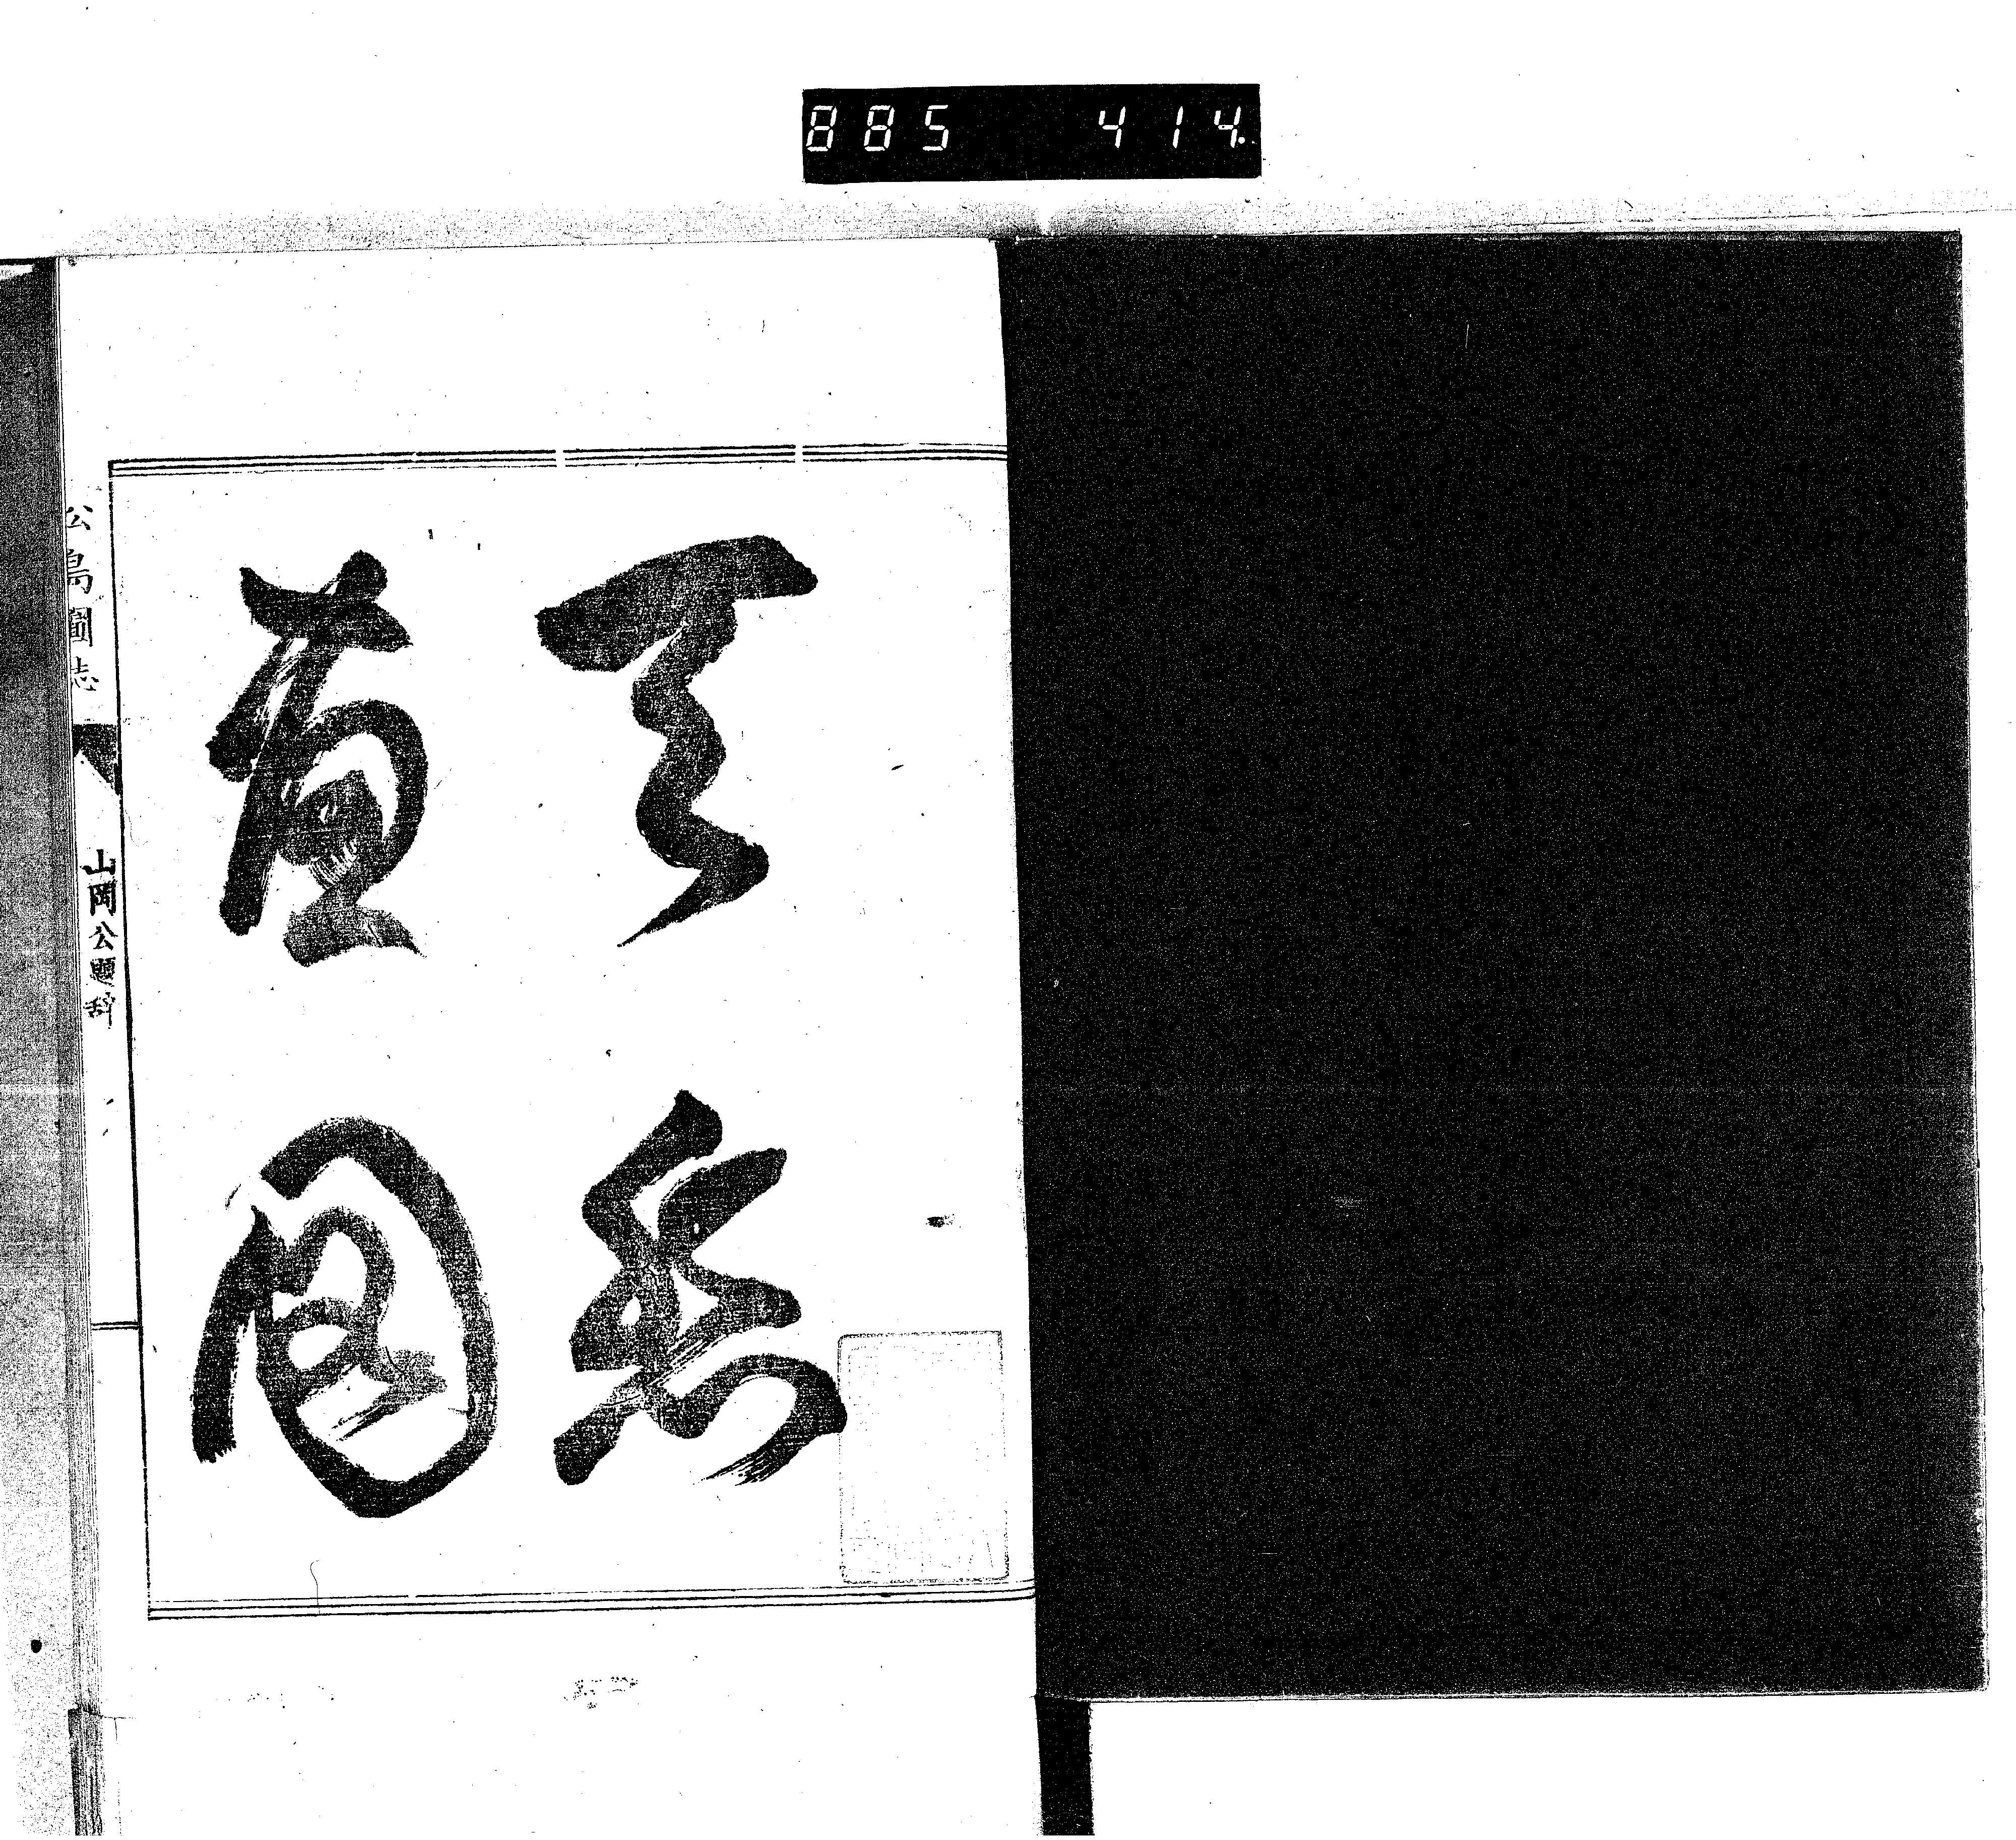 885 414
天然
畫圖
松島圖志
山岡公題辞